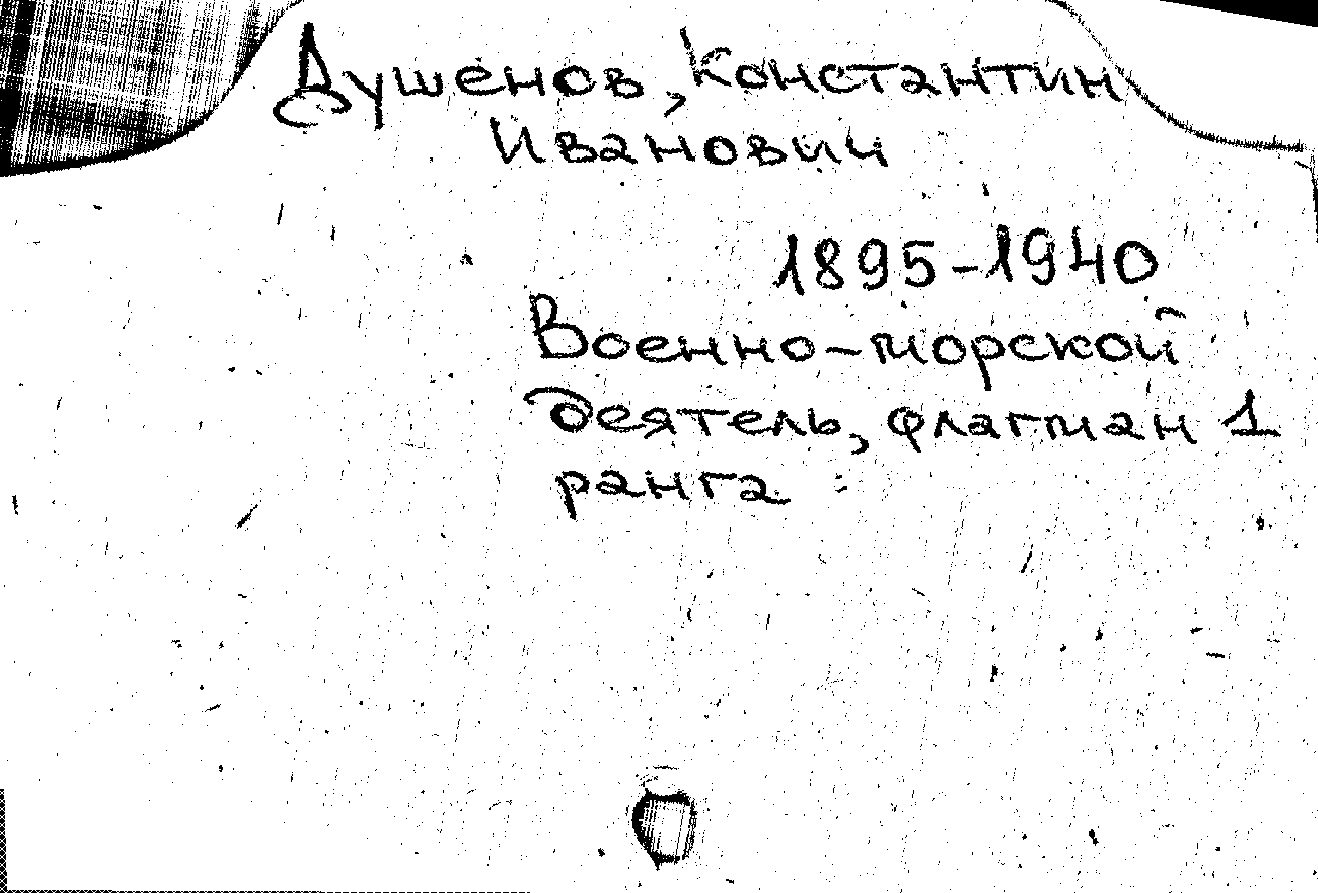 Душенов, Константин
Иванович
1895-1940
Военно-морской
деятель, флагман 1
ранга